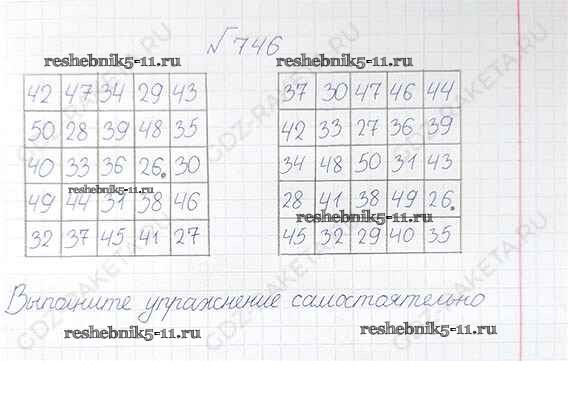 № 746
reshebnik5-11.ru reshebnik5-11.ru
42 47 34 29 43
50 28 39 48 35
40 33 36 26. 30
reshebnik5-11.ru
49 44 31 38 46
32 37 45 41 27
37 30 47 46 44
42 33 27 36 39
34 48 50 31 43
28 41 38 49 26.
reshebnik5-11.ru
45 32 29 40 35
Выполните упражнение самостоятельно
reshebnik5-11.ru reshebnik5-11.ru
GDZ-RAKETA.RU
GDZ-RAKETA.RU
GDZ-RAKETA.RU
GDZ-RAKETA.RU
GDZ-RAKETA.RU
GDZ-RAKETA.RU